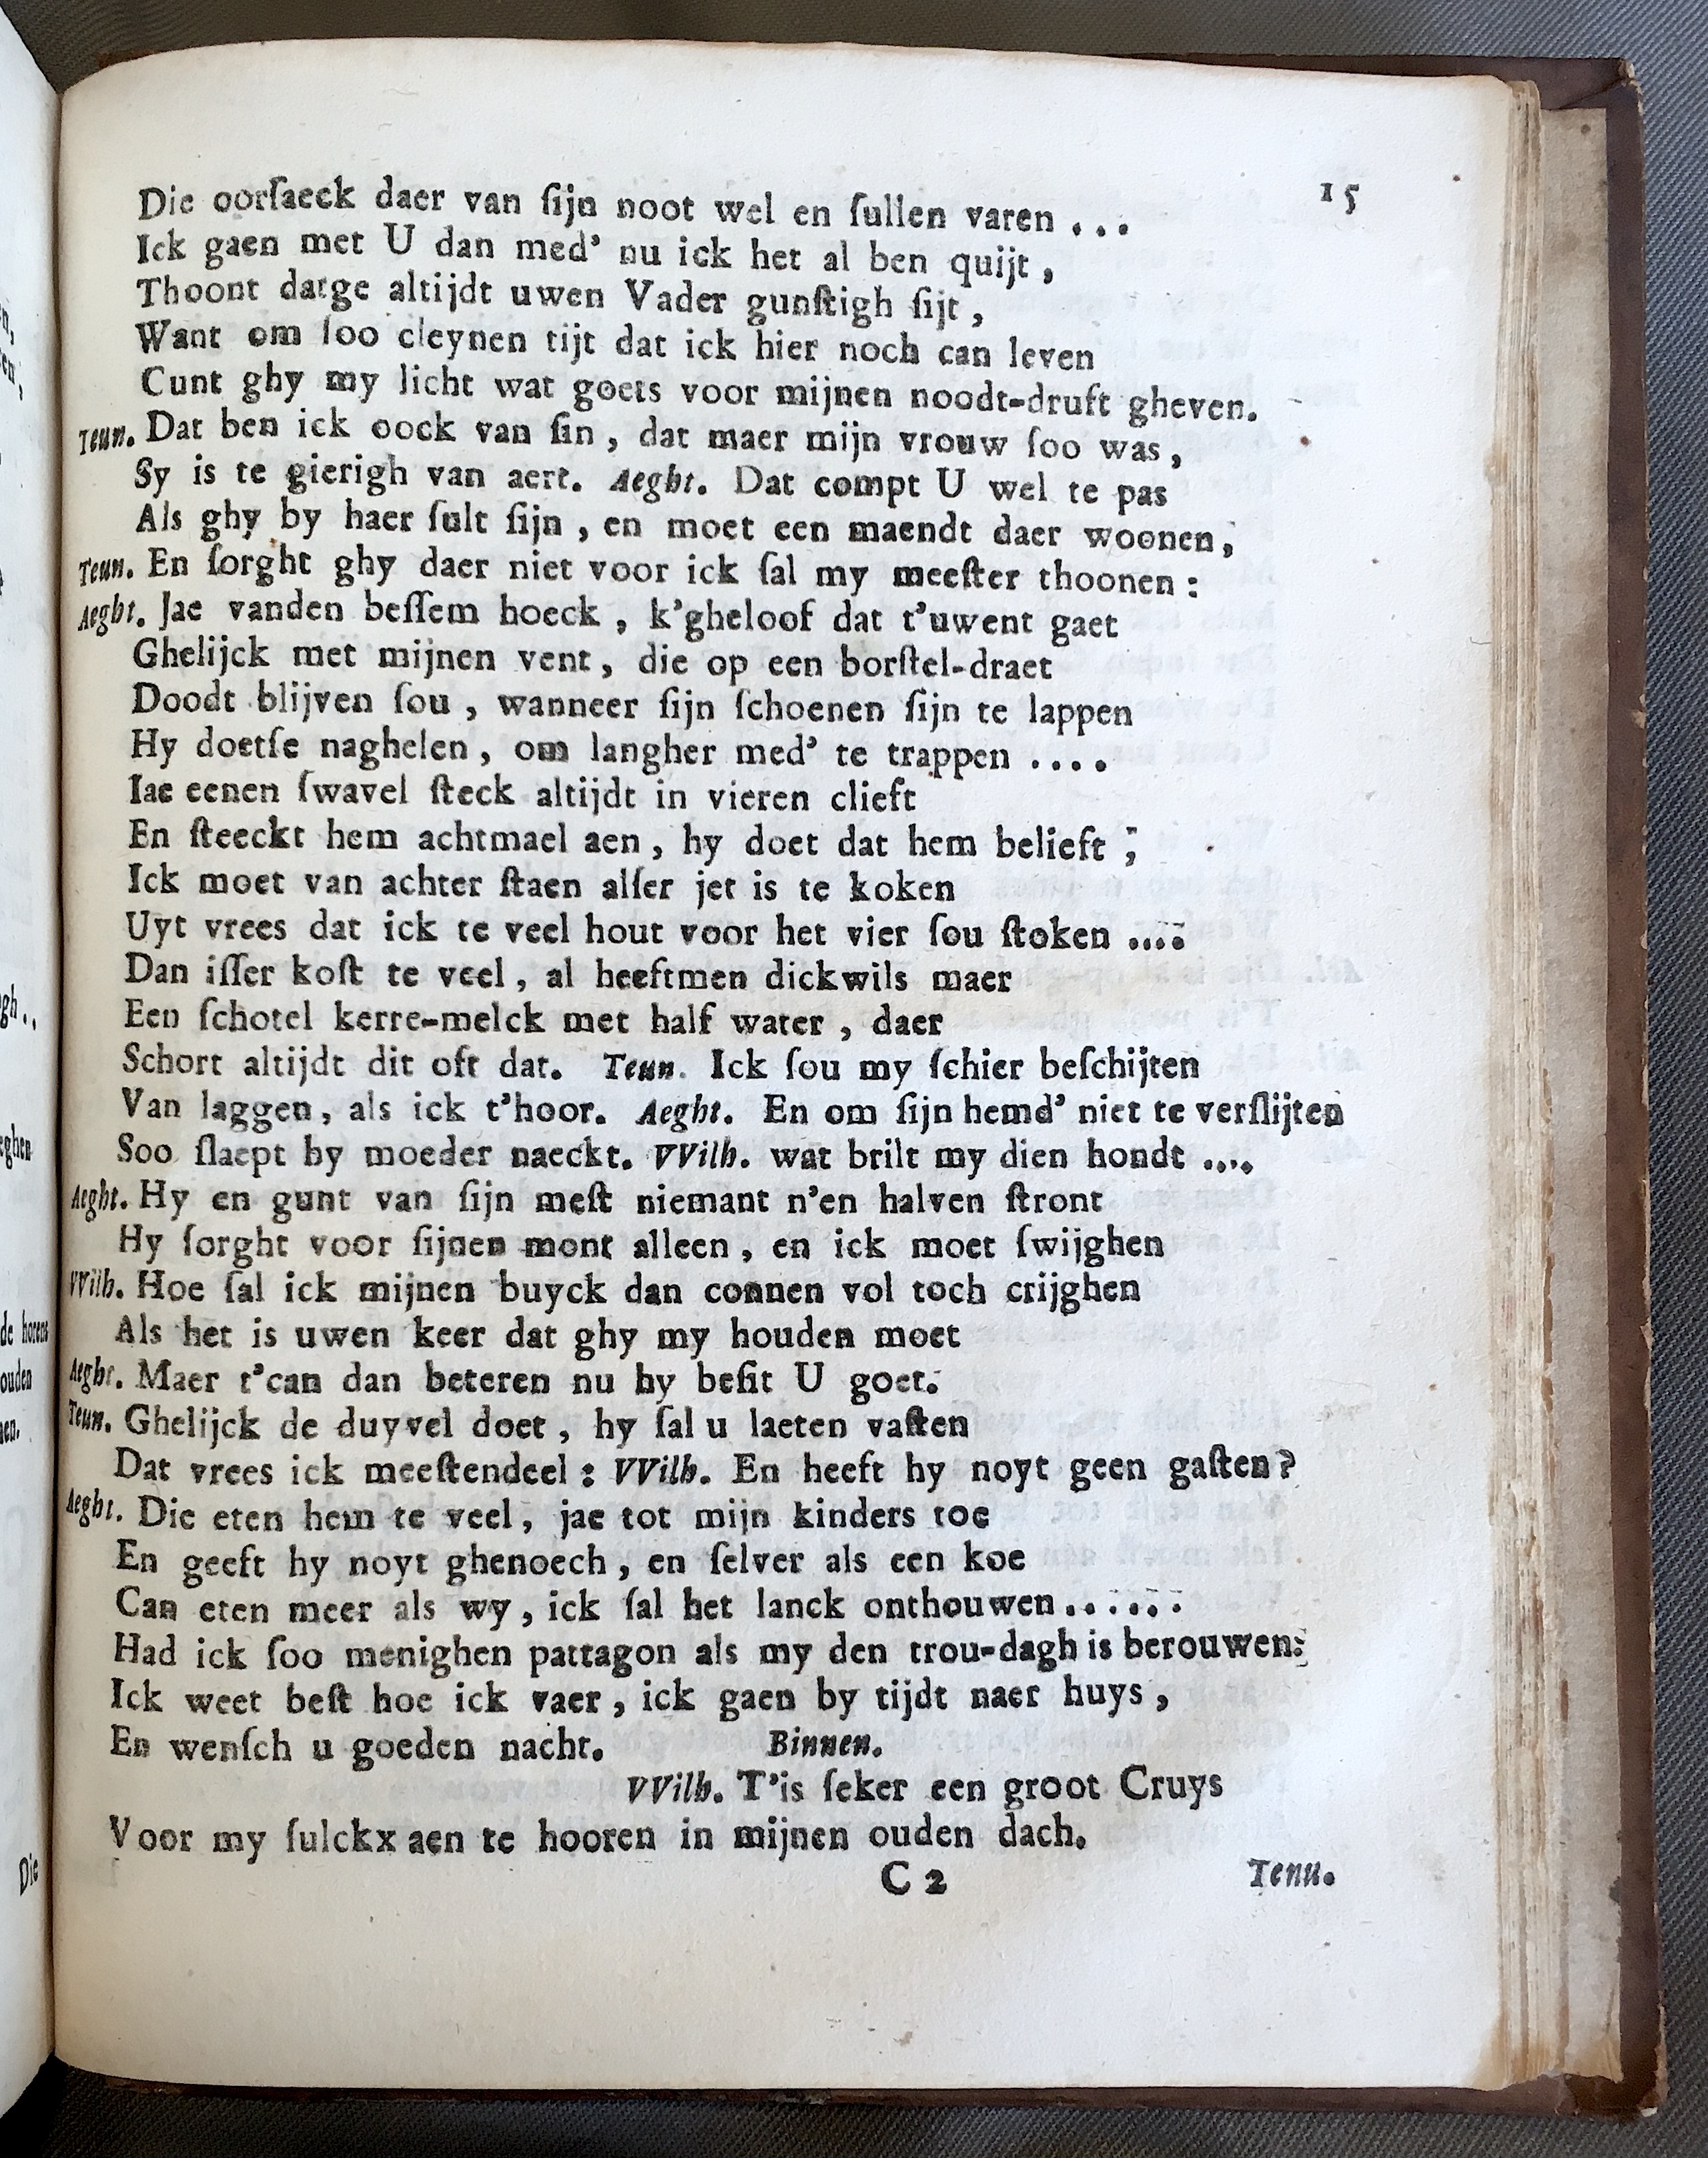 15
Die oorſaeck daer van ſijn noot wel en ſullen varen ...
Ick gaen met U dan med' nu ick het al ben quijt ,
Thoont datge altijdt uwen Vader gunſtigh ſijt ,
Want om ſoo cleynen tijt dat ick hier noch can leven
Cunt ghy my licht wat goets voor mijnen noodt-druft gheven.
Teun. Dat ben ick oock van ſin , dat maer mijn vrouw ſoo was ,
Sy is te gierigh van aert. Aeght. Dat compt U wel te pas
Als ghy by haer ſult ſijn , en moet een maendt daer woonen ,
Teun. En ſorght ghy daer niet voor ick ſal my meeſter thoonen :
Aeght. Jae vanden beſſem hoeck , k'gheloof dat t'uwent gaet
Ghelijck met mijnen vent , die op een borſtel-draet
Doodt blijven ſou , wanneer ſijn ſchoenen ſijn te lappen
Hy doetſe naghelen , om langher med' te trappen ....
Iae eenen ſwavel ſteck altijdt in vieren clieft
En ſteeckt hem achtmael aen , hy doet dat hem belieft ;
Ick moet van achter ſtaen alſſer jet is te koken
Uyt vrees dat ick te veel hout voor het vier ſou ſtoken ....
Dan iſſer koſt te veel , al heeftmen dickwils maer
Een ſchotel kerre-melck met half water , daer
Schort altijdt dit oft dat. Teun. Ick ſou my ſchier beſchijten
Van laggen , als ick t'hoor. Aeght. En om ſijn hemd' niet te verſlijten
Soo ſlaept hy moeder naeckt. VVilh. wat brilt my dien hondt ....
Aeght. Hy en gunt van ſijn meſt niemant n'en halven ſtront
Hy ſorght voor ſijnen mont alleen , en ick moet ſwijghen
VVilh. Hoe ſal ick mijnen buyck dan connen vol toch crijghen
Als het is uwen keer dat ghy my houden moet
Aeght. Maer t'can dan beteren nu hy beſit U goet.
Teun. Ghelijck de duyvel doet , hy ſal u laeten vaſten
Dat vrees ick meeſtendeel : VVilh. En heeft hy noyt geen gaſten ?
Aeght. Die eten hem te veel , jae tot mijn kinders toe
En geeft hy noyt ghenoech , en ſelver als een koe
Can eten meer als wy , ick ſal het lanck onthouwen ......
Had ick ſoo menighen pattagon als my den trou-dagh is berouwen:
Ick weet beſt hoe ick vaer , ick gaen by tijdt naer huys ,
En wenſch u goeden nacht. Binnen.
VVilh. T'is ſeker een groot Cruys
Voor my ſulckx aen te hooren in mijnen ouden dach.
C 2 Tenu.